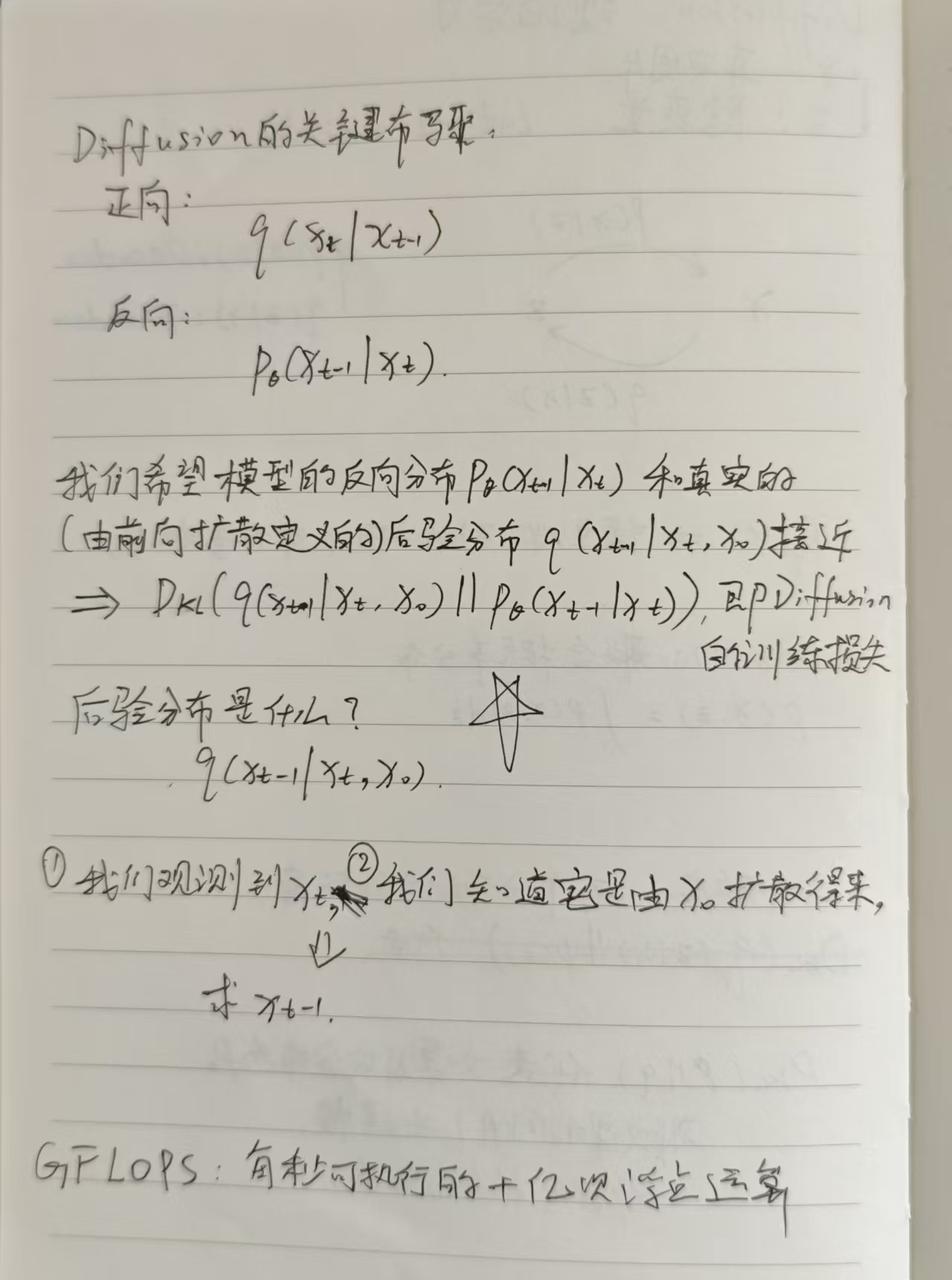 Diffusion的关键布骤.
正向:
q(xt|xt-1)
反向:
pθ(xt-1|xt).
我们希望模型的反向分布pθ(xt-1|xt)和真实的
(由前向扩散定义的)后验分布 q(xt-1|xt,x0)接近
⇒ DKL(q(xt-1|xt,x0)||pθ(xt-1|xt)),即Diffusion
的训练损失
后验分布是什么?
q(xt-1|xt,x0).
①我们观测到xt,②我们知道它是由x0扩散得来,
⇓
求 xt-1.
GFLOPS:每秒可执行的十亿次浮点运算